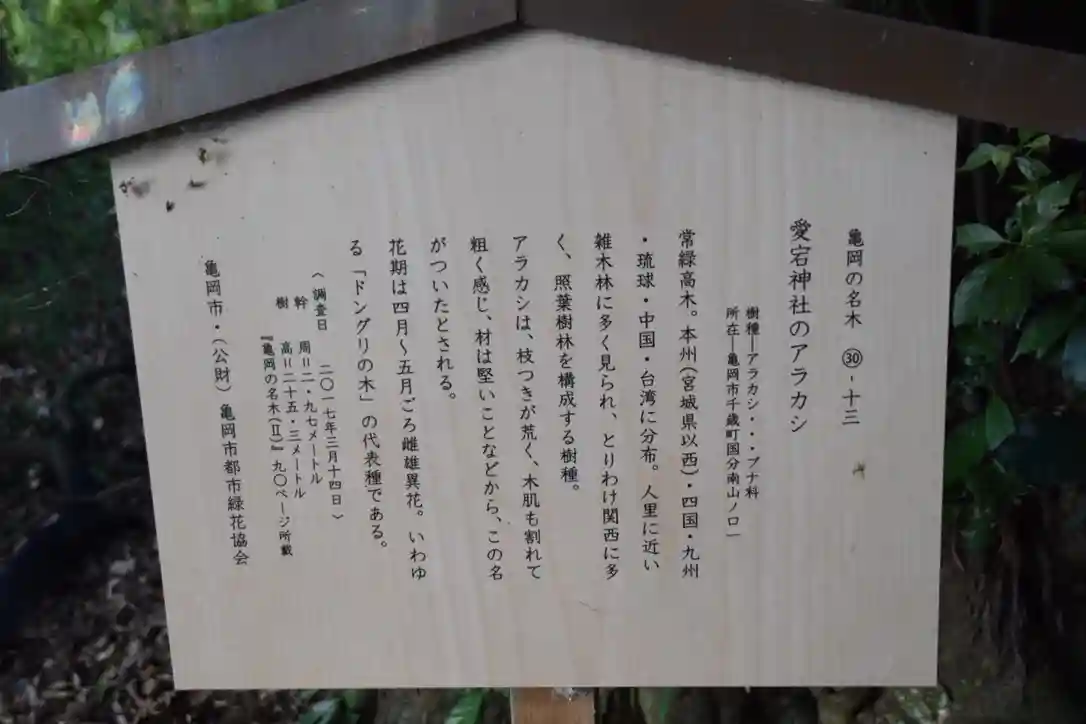 亀岡の名木 ㉚-十三
愛宕神社のアラカシ
樹種―アラカシ・・・ブナ科
所在―亀岡市千歳町国分南山ノ口一
常緑高木。本州(宮城県以西)・四国・九州
・琉球・中国・台湾に分布。人里に近い
雑木林に多く見られ、とりわけ関西に多
く、照葉樹林を構成する樹種。
アラカシは、枝つきが荒く、木肌も割れて
粗く感じ、材は堅いことなどから、この名
がついたとされる。
花期は四月～五月ごろ雌雄異花。いわゆ
る「ドングリの木」の代表種である。
(調査日 二〇一七年三月十四日)
幹 周＝二・九七メートル
樹 高＝二十五・三メートル
『亀岡の名木(Ⅱ)』九〇ページ所載
亀岡市・(公財)亀岡市都市緑花協会